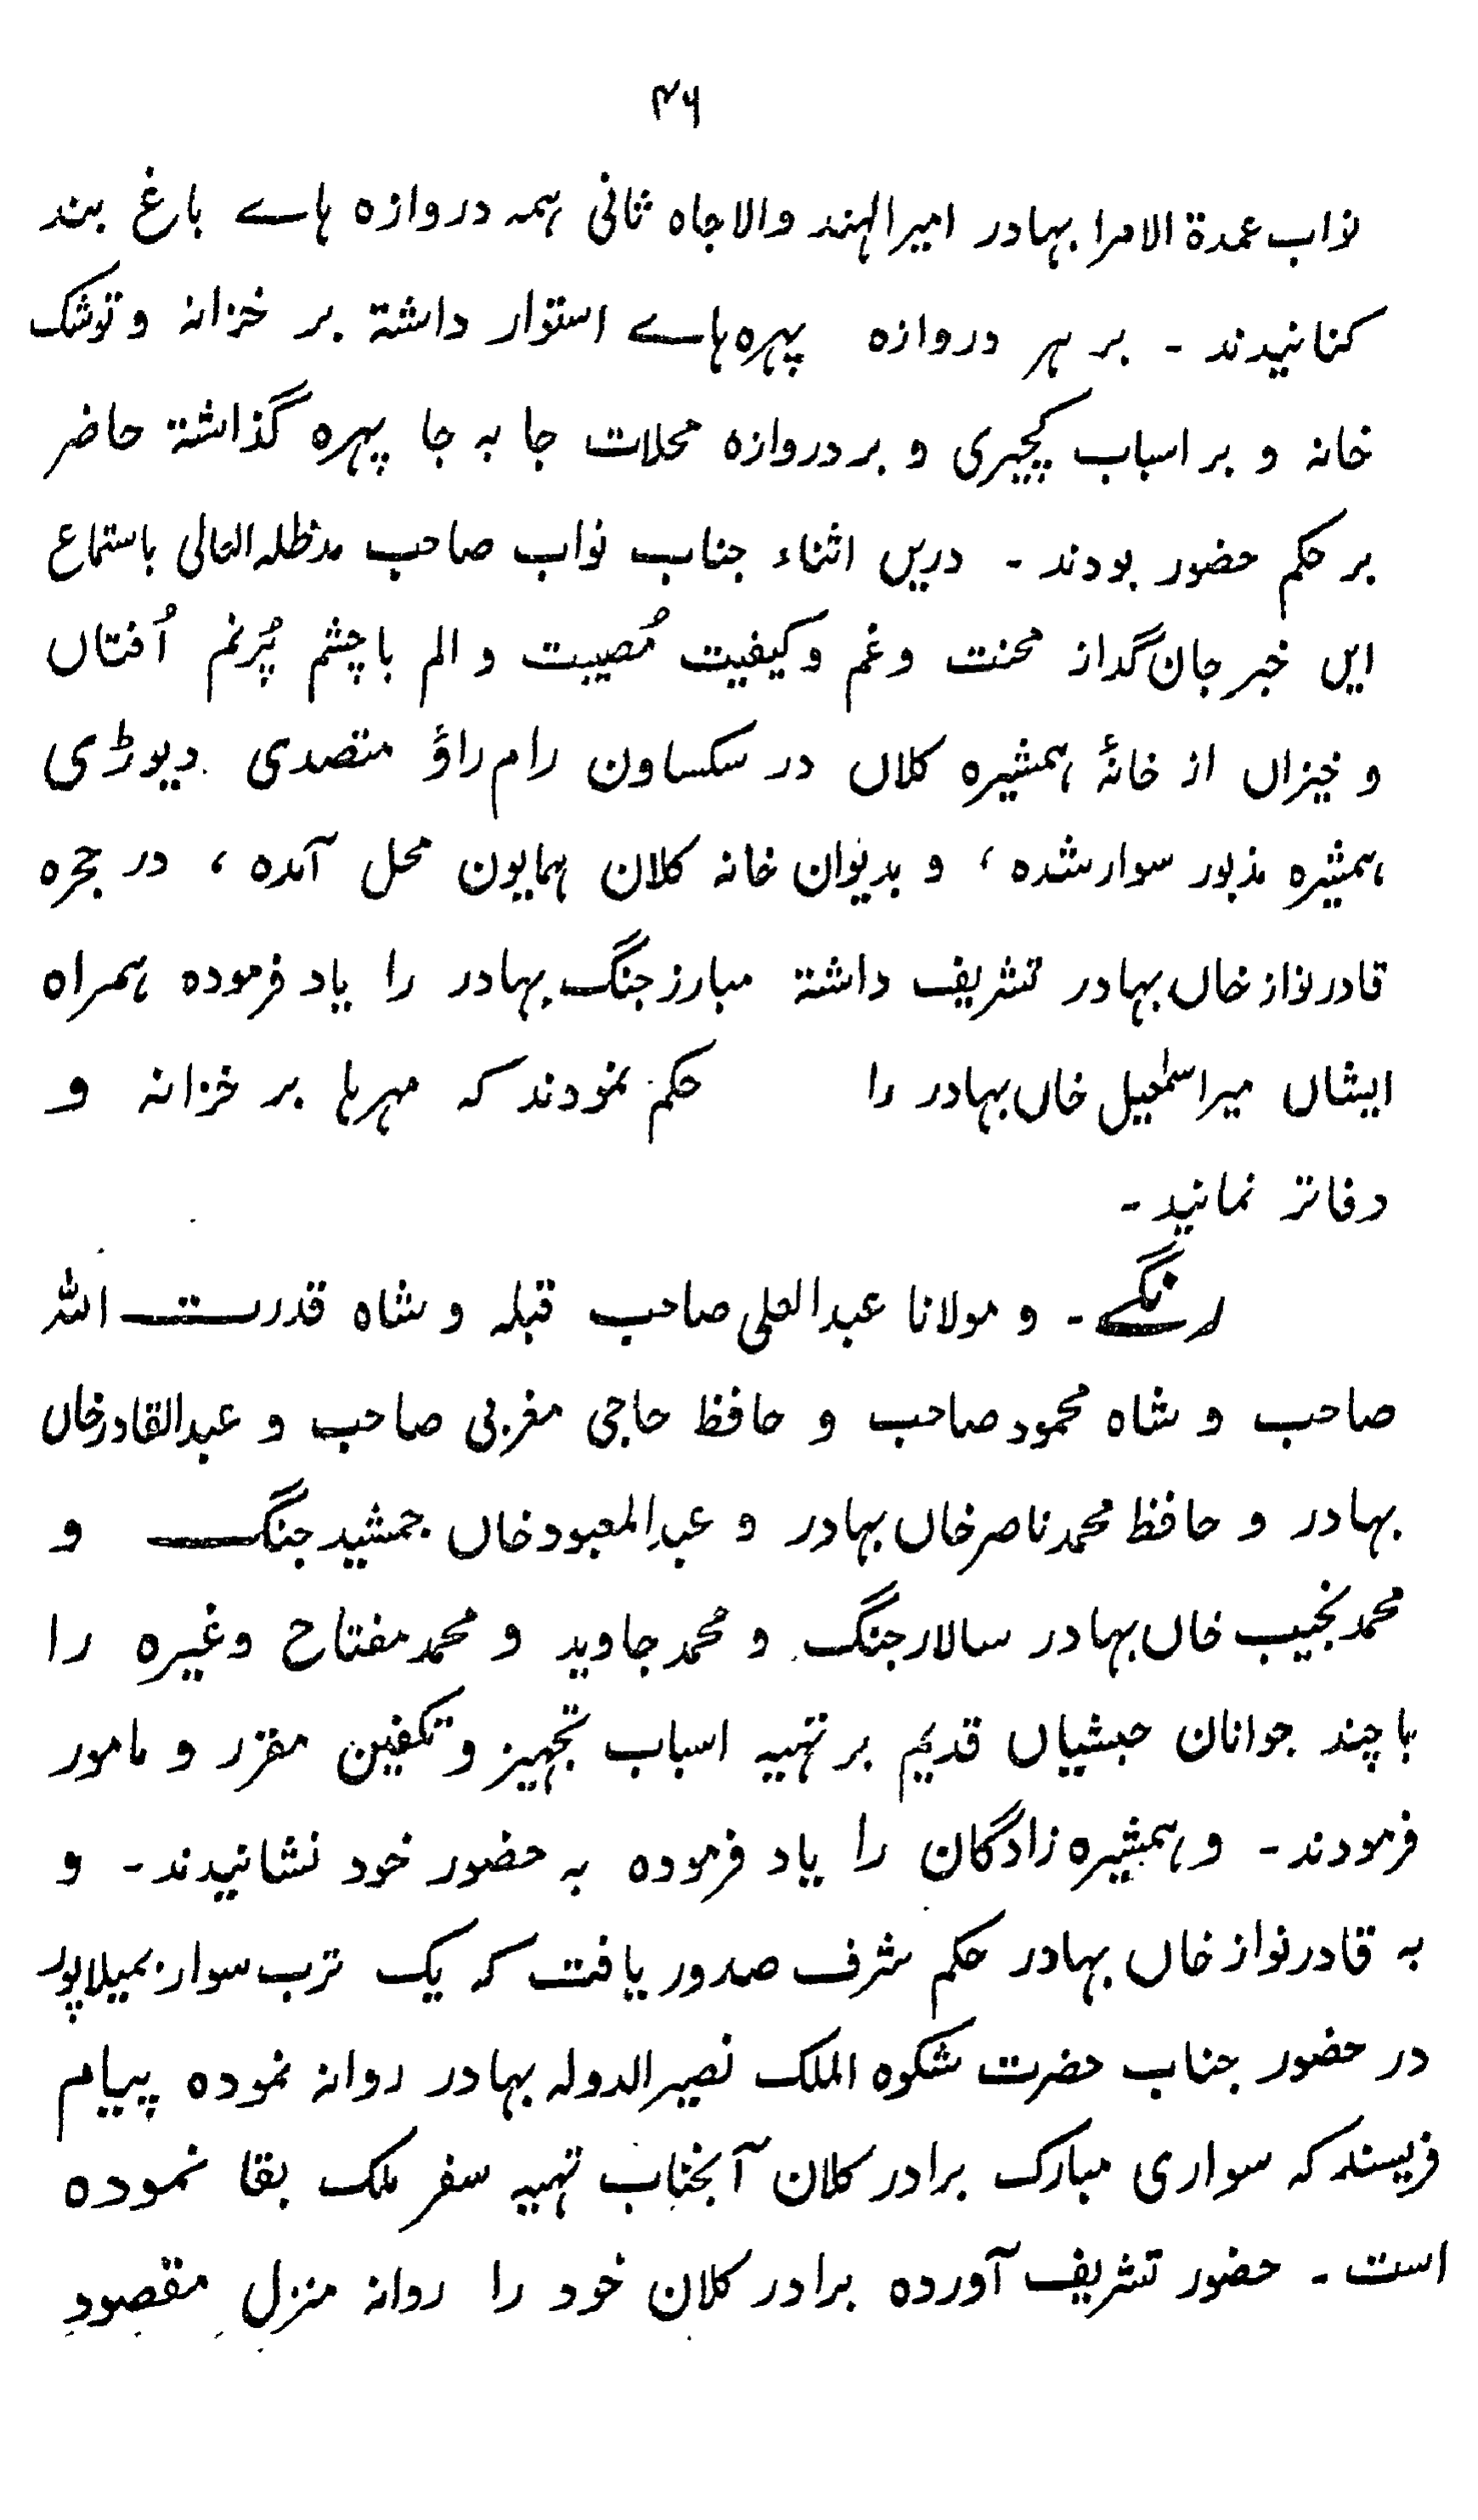 ۴۶
نواب عمدة الامرا بہادر امیر الہند والا جاہ ثانی ہمہ دروازہ ہاے باغ بند
کنانیدند ۔ بر ہر دروازہ پہرہ ہاے استوار داشتۃ بر خزانہ و توشک
خانہ و بر اسباب کچیری و بر دروازہ محلات جا بہ جا پہرہ گذاشتۃ حاضر
بر حکم حضور بودند ۔ دریں اثناء جناب نواب صاحب مدظلہ العالی باستماع
ایں خبر جان گداز محنت و غم و کیفیت مُصیبت و الم با چشم پُرنم اُفتاں
و خیزاں از خانۂ ہمشیرہ کلاں در سکساون رام راؤ متصدی دیوڑی
ہمشیرہ مذبور سوار شدہ ، و بدیوان خانہ کلان ہمایون محل آمدہ ، در حجرہ
قادر نواز خاں بہادر تشریف داشتۃ مبارز جنگ بہادر را یاد فرمودہ ہمراہ
ایشاں میر اسمٰعیل خاں بہادر را حکم نمودند کہ مہرہا بر خزانہ و
دفاتر نمانید ۔
رنگے ۔ و مولانا عبد العلی صاحب قبلہ و شاہ قدرت اللہ
صاحب و شاہ محمود صاحب و حافظ حاجی مغربی صاحب و عبد القادر خاں
بہادر و حافظ محمد ناصر خاں بہادر و عبدِ المعبود خاں جمشید جنگ و
محمد نجیب خاں بہادر سالار جنگ و محمد جاوید و محمد مفتاح وغیرہ را
با چند جوانان حبشیاں قدیم بر تہیہ اسباب تجہیز و تکفین مقرّر و مامور
فرمودند ۔ و ہمشیرہ زادگان را یاد فرمودہ بہ حضور خود نشانیدند ۔ و
بہ قادر نواز خاں بہادر حکم شرف صدور یافت کہ یک ترب سوار بمیلاپور
در حضور جناب حضرت شکوہ الملک نصیر الدولہ بہادر روانہ نمودہ پیام
فریسند کہ سواری مبارک برادر کلان آنجناب تہیہ سفر ملک بقا نمودہ
است ۔ حضور تشریف آوردہ برادر کلان خود را روانہ منزل مقصود